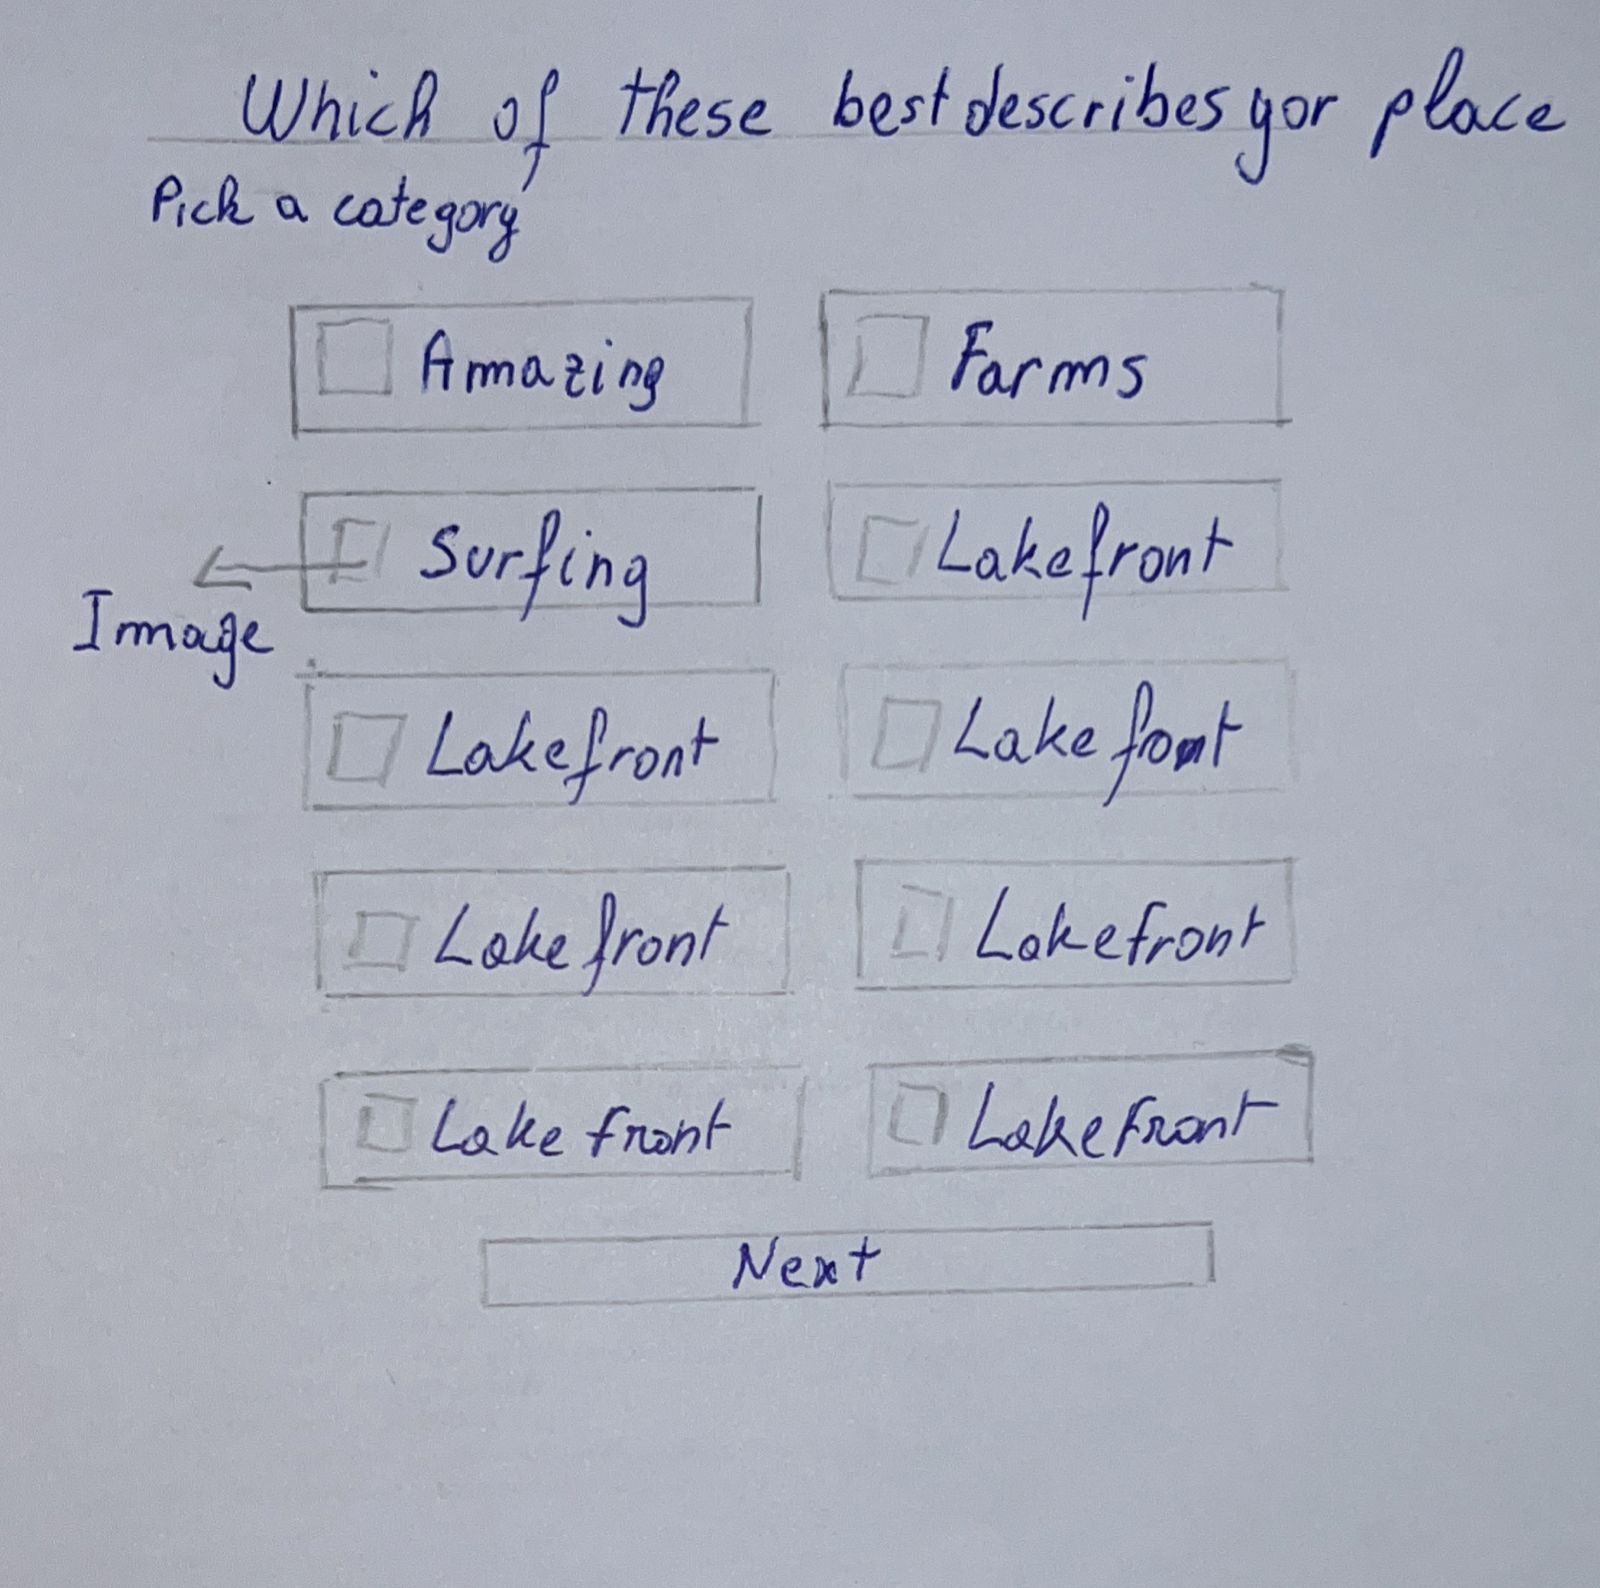 Which of these best describes yor place
Pick a category
Amazing
Farms
Surfing
Lakefront
Image
Lakefront
Lakefont
Lakefront
Lakefront
Lakefront
Lakefront
Next